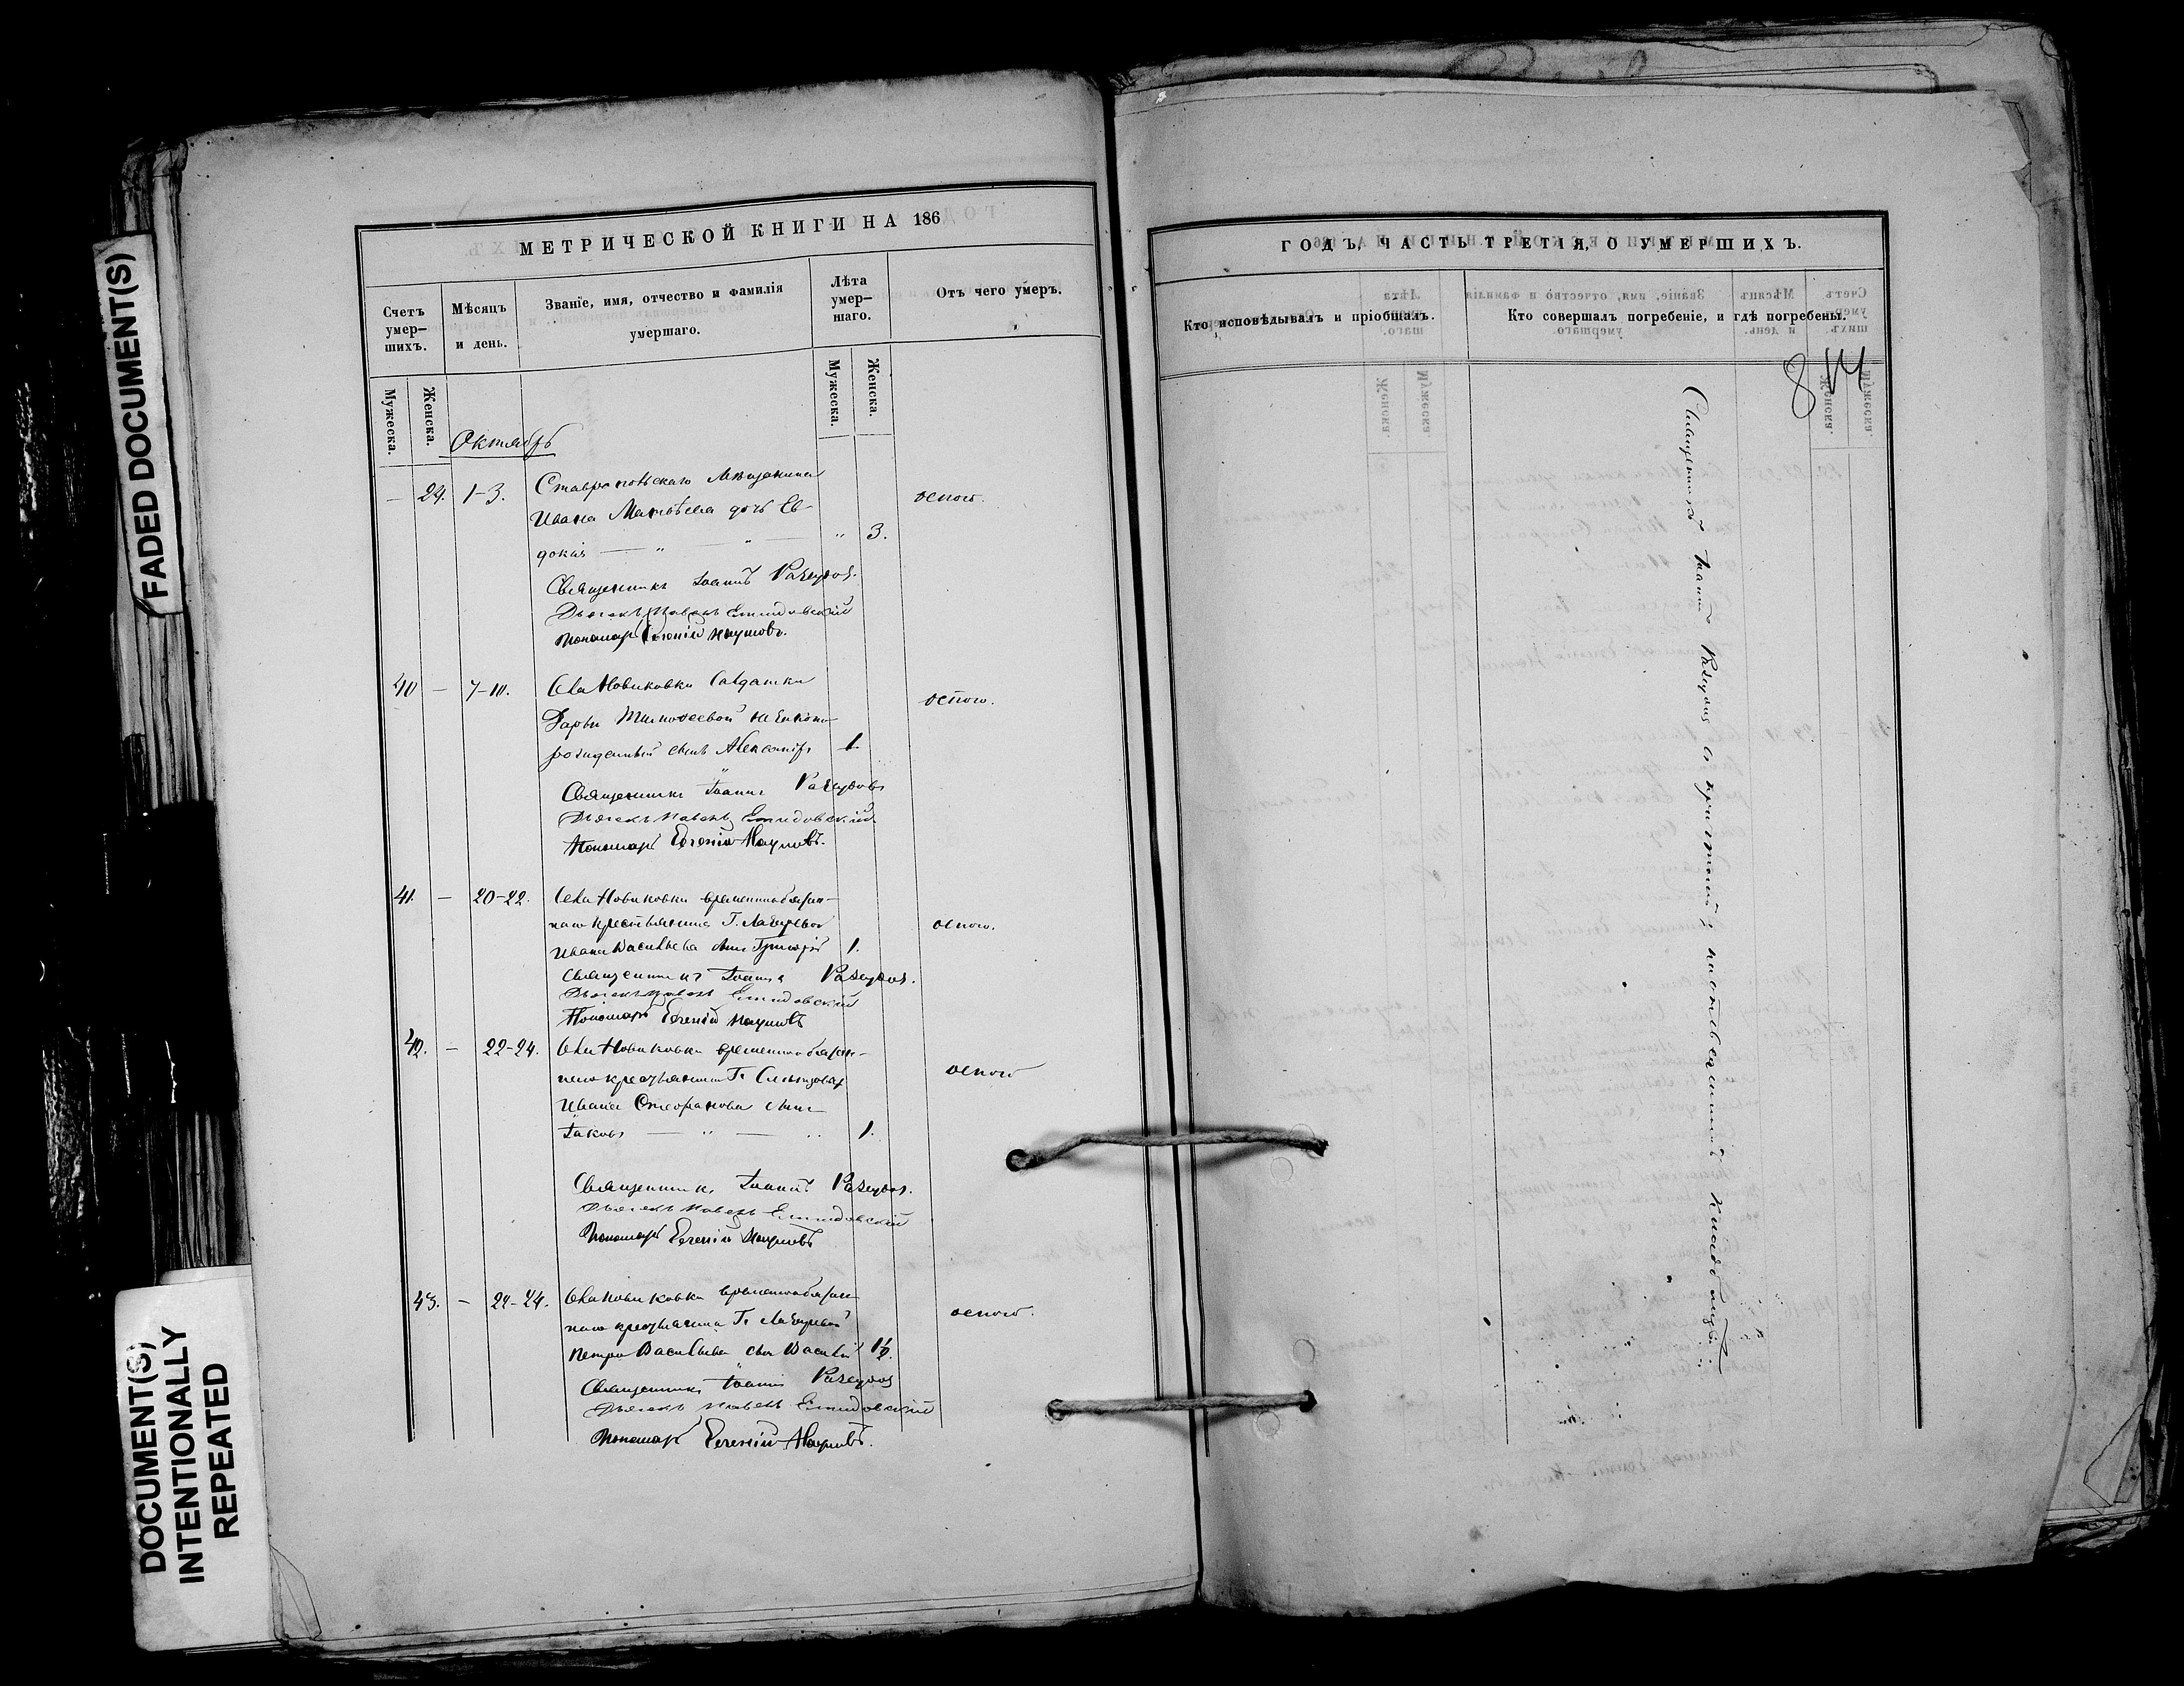 FADED DOCUMENT(S)
DOCUMENT(S)
INTENTIONALLY
REPEATED
МЕТРИЧЕСКОЙ КНИГИ НА 186
Счетъ умер-шихъ.
Мѣсяцъ и день.
Званіе, имя, отчество и фамилія умершаго.
Лѣта умер-шаго.
Отъ чего умеръ.
Мужеска.
Женска.
Мужеска.
Женска.
Октябрь
— 24. 1-3. Ставропольскаго Мѣщанина оспою.
Ивана Матвѣева дочь Ев-
докія — " — " — " 3.
Священникъ Іоаннъ
Дьячекъ Павелъ
Пономарь Евгеній Наумовъ.
40 — 7-10. Села Новиковки Салдатки оспою.
Дарьи Тимофеевой незаконно-
рожденный сынъ Александръ 1.
Священникъ Іоаннъ
Дьячекъ Павелъ
Пономарь Евгеній Наумовъ.
41. — 20-22. Села Новиковки временнообязан-
наго крестьянина Г. оспою.
Ивана Васильева сынъ Григорій 1.
Священникъ Іоаннъ
Дьячекъ Павелъ
Пономарь Евгеній Наумовъ
42. — 22-24. Села Новиковки временнообязан-
наго крестьянина Г. оспою
Ивана сынъ
Іаковъ — " — " 1.
Священникъ Іоаннъ
Дьячекъ Павелъ
Пономарь Евгеній Наумовъ
43. — 22-24. Села Новиковки временнообязан-
наго крестьянина Г. оспою.
Петра Васильева сынъ Василій
Священникъ Іоаннъ
Дьячекъ Павелъ
Пономарь Евгеній Наумовъ.
ГОДЪ, ЧАСТЬ ТРЕТІЯ, О УМЕРШИХЪ.
Кто исповѣдывалъ и пріобщалъ.
Кто совершалъ погребеніе, и гдѣ погребены.
814
Священникъ Іоаннъ съ причтомъ, на кладбищѣ.